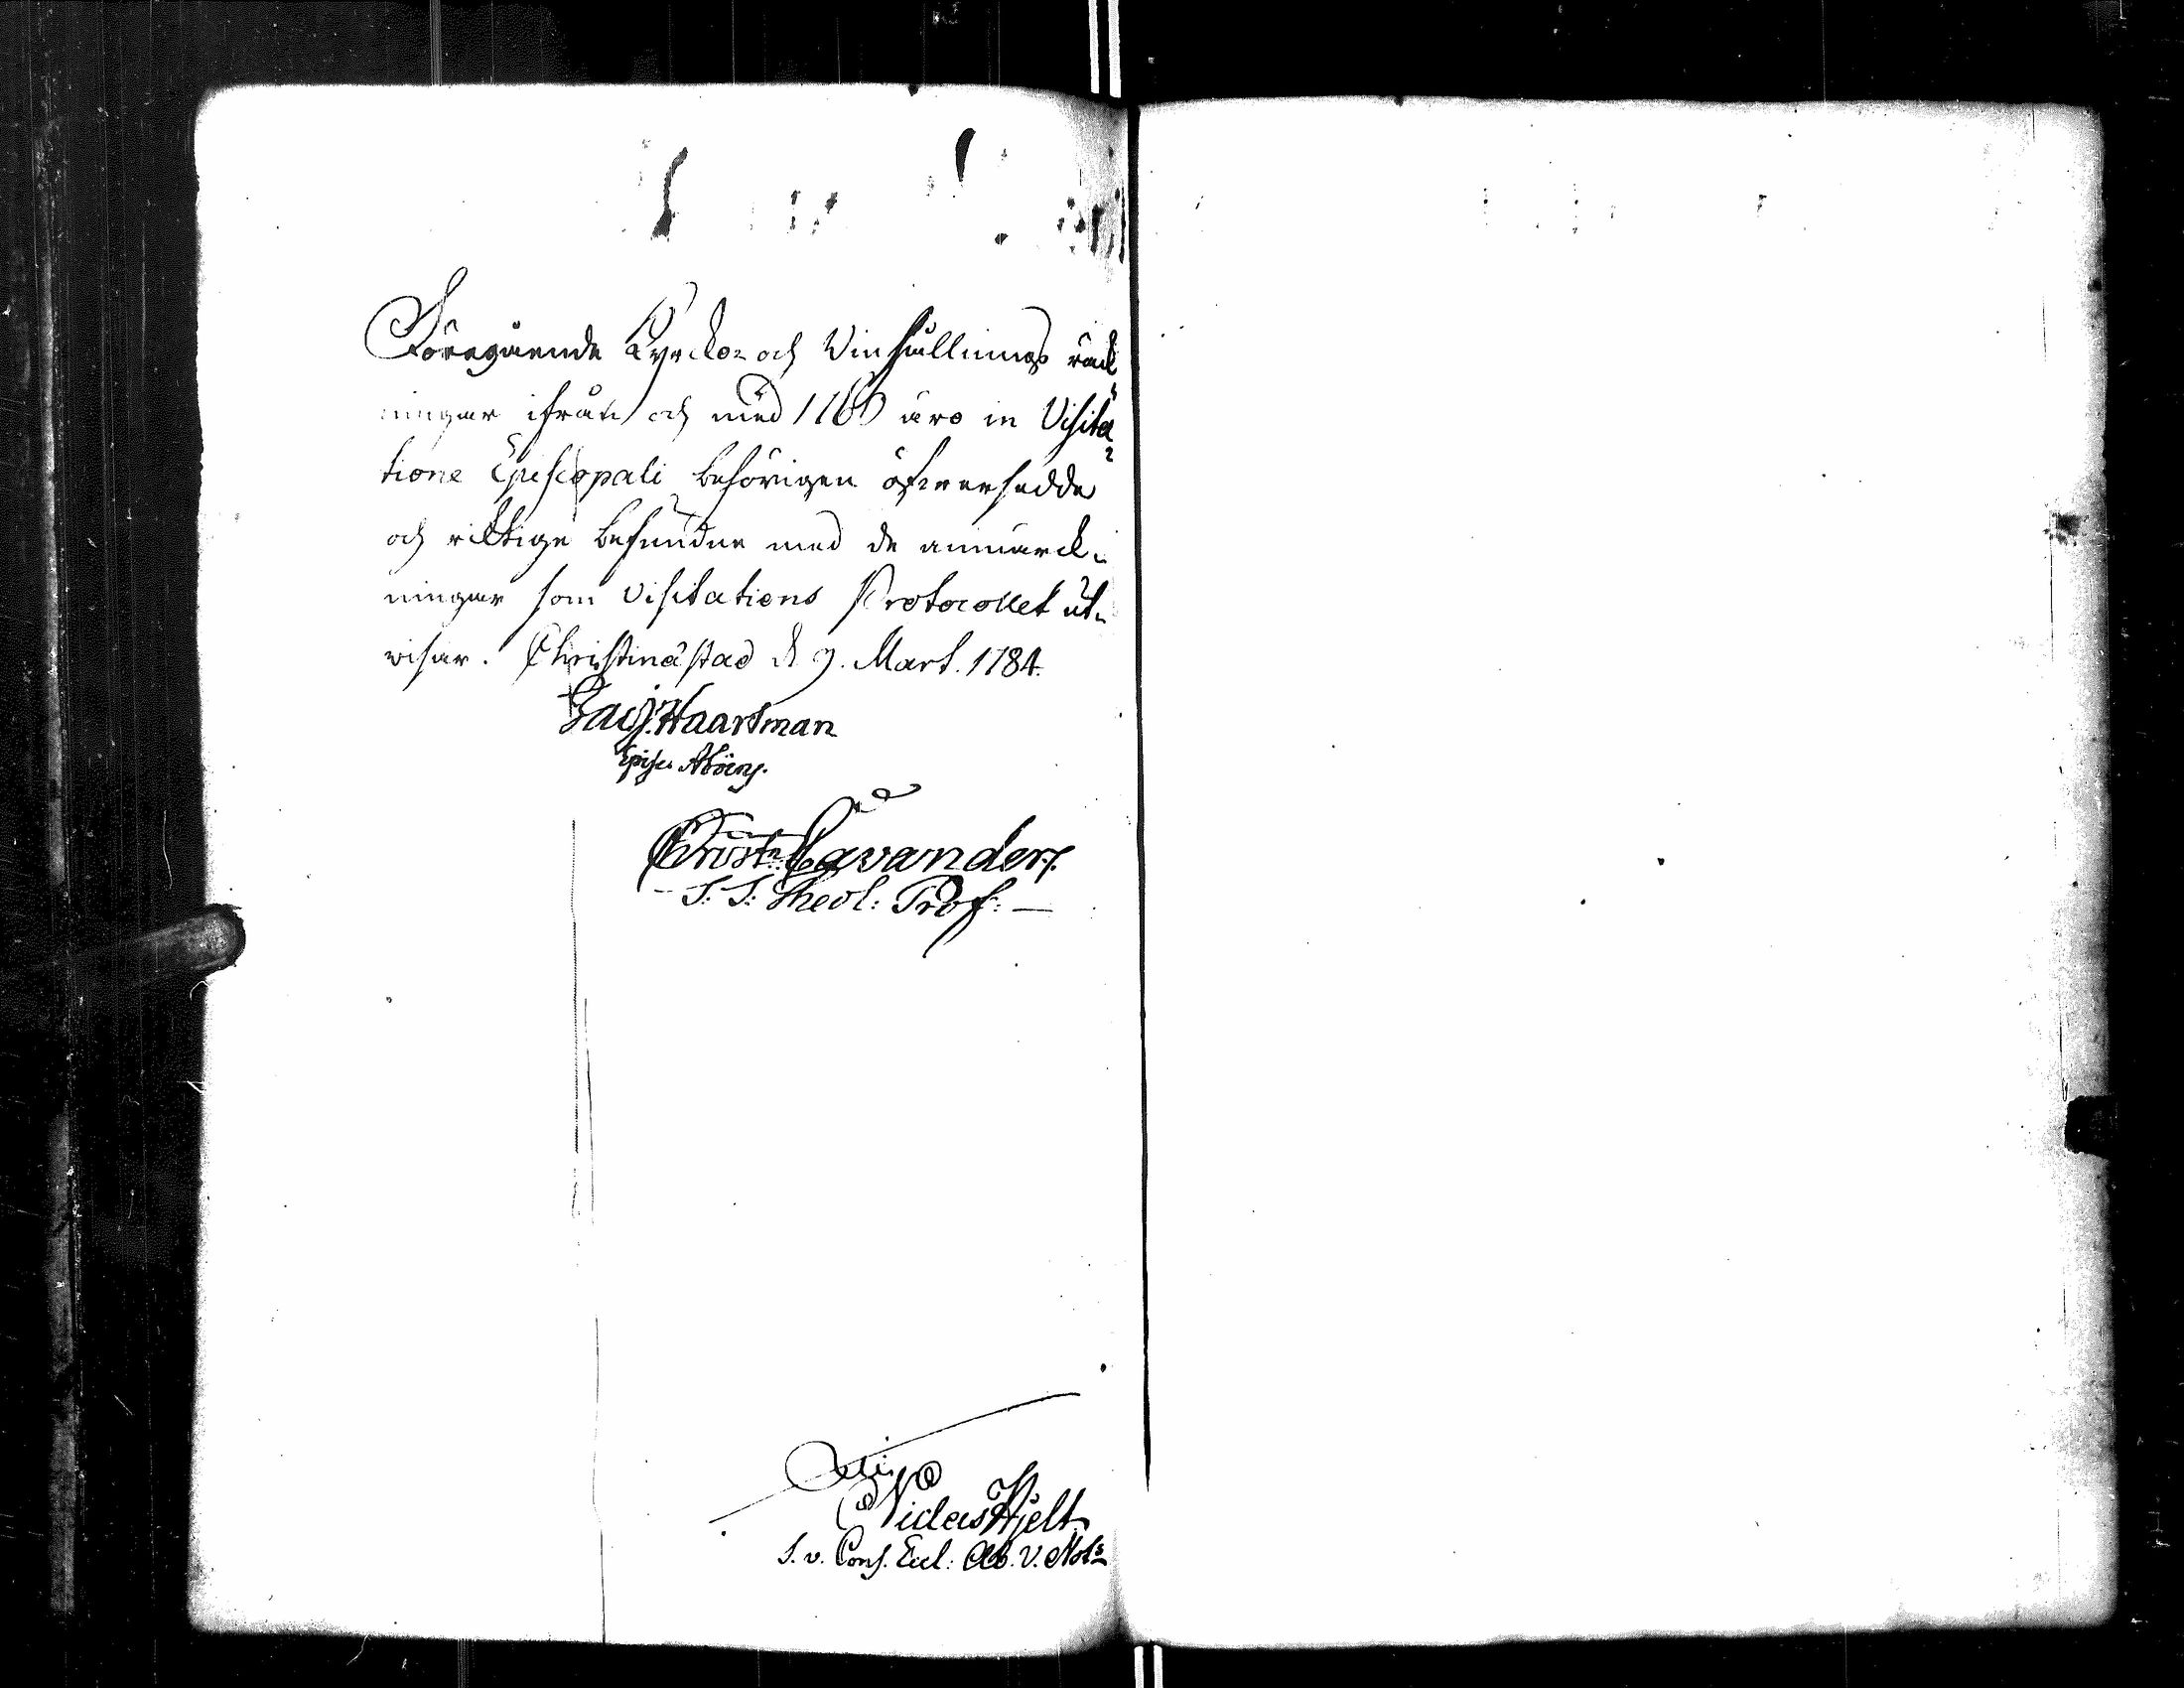 Föregående Kyrcko- och Vinhållnings räck
ningar ifrån och med 1760 äro in Visita-
tione Episcopali behörigen öfversedde
och riktige befundne med de anmärck-
ningar som Visitations Protocollet ut-
visar. Christinæstad d. 9. Mart. 1784.
Jac. Haartman
Episc. Aboens.
Christ. Cavander.
S. S. Theol: Prof:
Niclas Hjelt
s. v. Cons. Eccl: Ab. V. Nots